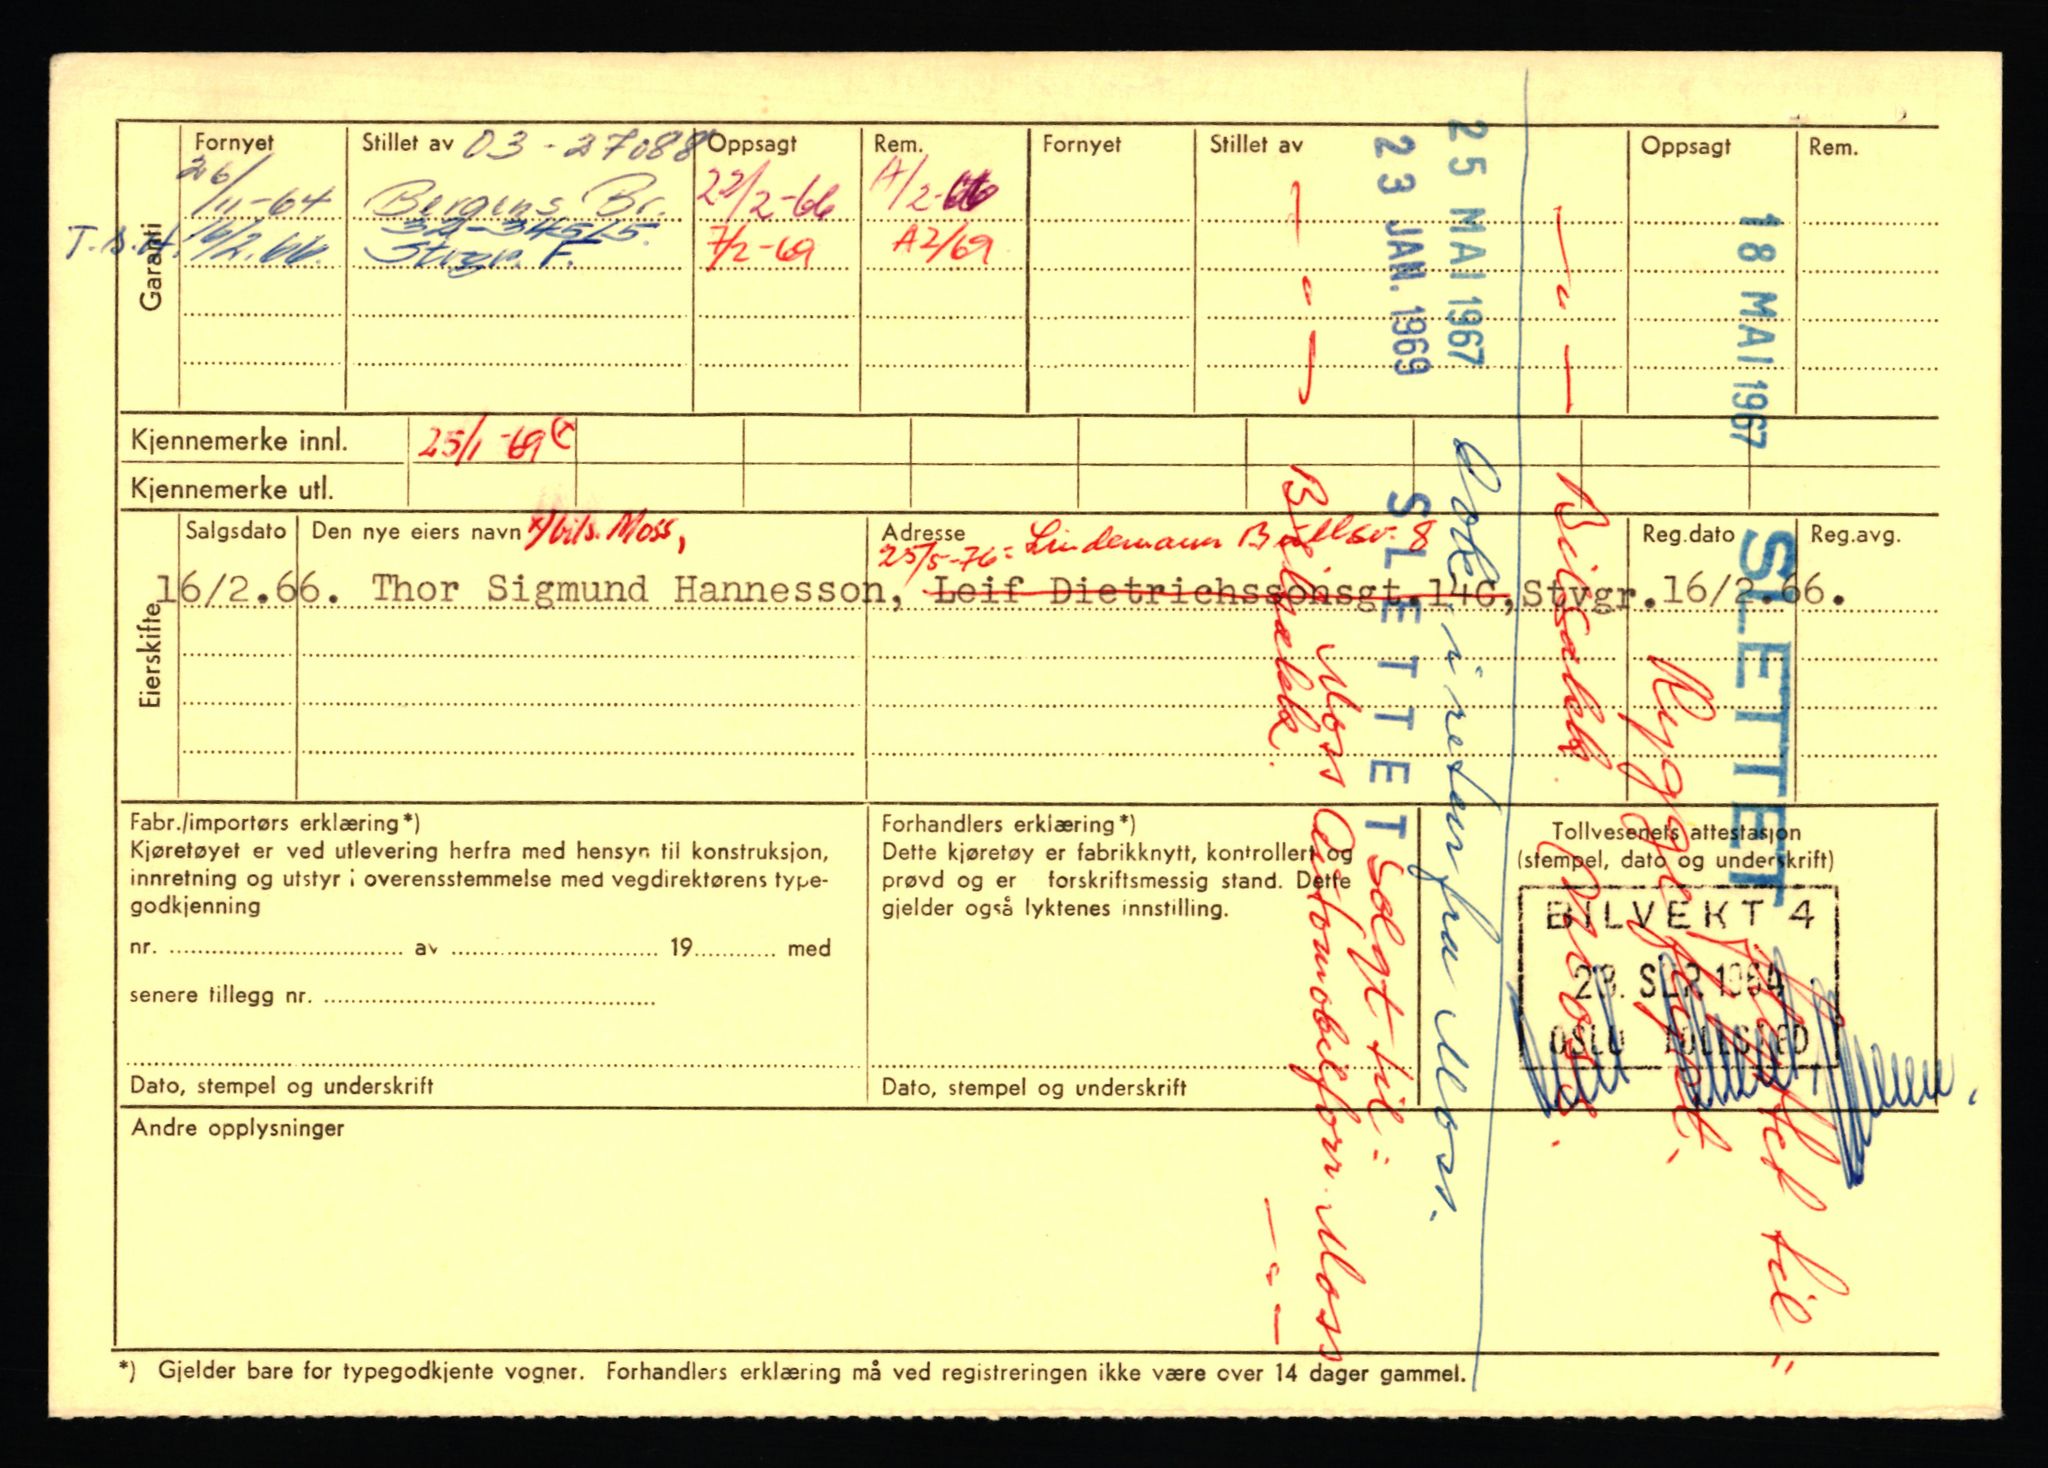 Garanti
Fornyet Stillet av 03-27088 Oppsagt Rem. Fornyet Stillet av Oppsagt Rem.
26/11-64 Bergens Br. 22/2-66 A/2-66
32-34515.
16/2.66. Stvgr. F. 7/2-69 A2/69
Kjennemerke innl. 25/1-69 x)
Kjennemerke utl.
Eierskifte
Salgsdato Den nye eiers navn x) bils. Moss, Adresse Reg.dato Reg.avg.
25/5-76= Lindemann Bullsv. 8
16/2.66. Thor Sigmund Hannesson, Leif Dietrichssonsgt.14C, Stvgr. 16/2.66.
Fabr./importørs erklæring*)
Kjøretøyet er ved utlevering herfra med hensyn til konstruksjon,
innretning og utstyr i overensstemmelse med vegdirektørens type-
godkjenning
nr. av 19 med
senere tillegg nr.
Dato, stempel og underskrift
Forhandlers erklæring*)
Dette kjøretøy er fabrikknytt, kontrollert og
prøvd og er forskriftsmessig stand. Dette
gjelder også lyktenes innstilling.
Dato, stempel og underskrift
Tollvesenets attestasjon
(stempel, dato og underskrift)
BILVEKT 4
28. SEP. 1964
OSLO TOLLSTED
Andre opplysninger
*) Gjelder bare for typegodkjente vogner. Forhandlers erklæring må ved registreringen ikke være over 14 dager gammel.
18 MAI 1967 SLETTET
Flyttet til=
Rygge
Bilsakk Moss.
25 MAI 1967 i retur fra Moss.
23 JAN. 1969 SLETTET Solgt til=
Moss Automobilforr. Moss